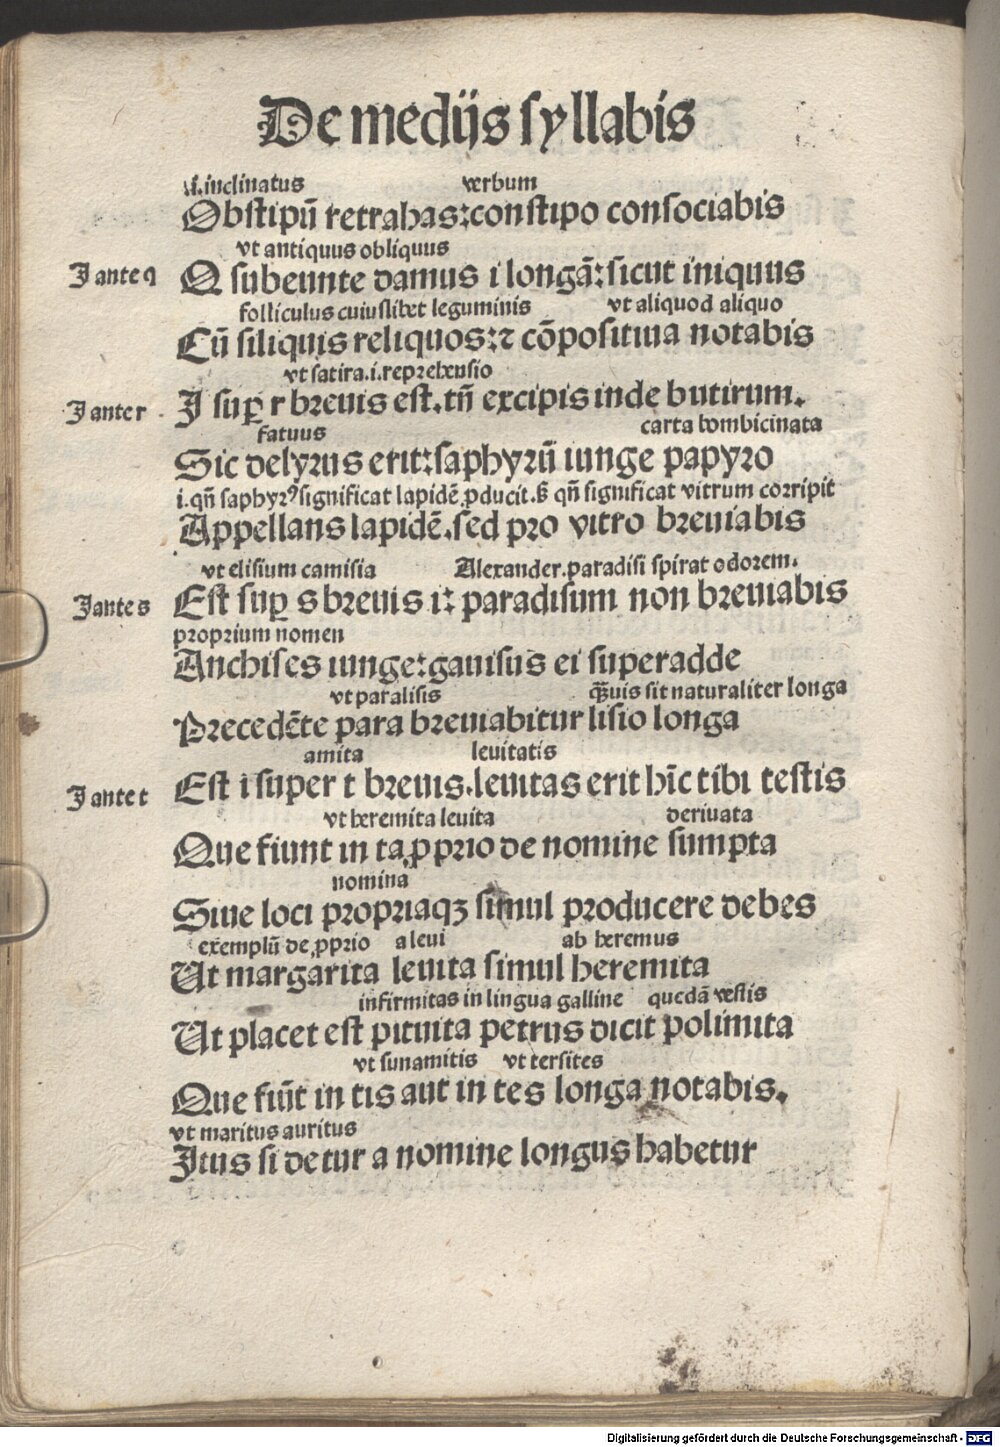 De medijs syllabis
.i.inclinatus verbum
Obstipū retrahas:constipo consociabis
vt antiquus obliquus
I ante q Q subeunte damus i longā:sicut iniquus
folliculus cuiuslibet leguminis vt aliquod aliquo
Cū siliquis reliquos:⁊ cōpositiua notabis
vt satira.i.reprehensio
I ante r I suꝑ r breuis est.tñ excipis inde butirum.
fatuus carta bombicinata
Sic delyrus erit:saphyrū iunge papyro
i.qñ saphyrꝰ significat lapidē ꝓducit.sꝫ qñ significat vitrum corripit
Appellans lapidē.sed pro vitro breuiabis
vt elisium camisia Alexander.paradisi spirat odorem.
I ante s Est suꝑ s breuis i: paradisum non breuiabis
proprium nomen
Anchises iunge:gauisus ei superadde
vt paralisis q̄uis sit naturaliter longa
Precedēte para breuiabitur lisio longa
amita leuitatis
I ante t Est i super t breuis.leuitas erit hīc tibi testis
vt heremita leuita deriuata
Que fiunt in ta ꝓprio de nomine sumpta
nomina
Siue loci propriaqꝫ simul producere debes
exemplū de ꝓprio a leui ab heremus
Ut margarita leuita simul heremita
infirmitas in lingua galline quedā vestis
Ut placet est pituita petrus dicit polimita
vt sunamitis vt tersites
Que fiūt in tis aut in tes longa notabis.
vt maritus auritus
Itus si detur a nomine longus habetur
Digitalisierung gefördert durch die Deutsche Forschungsgemeinschaft - DFG